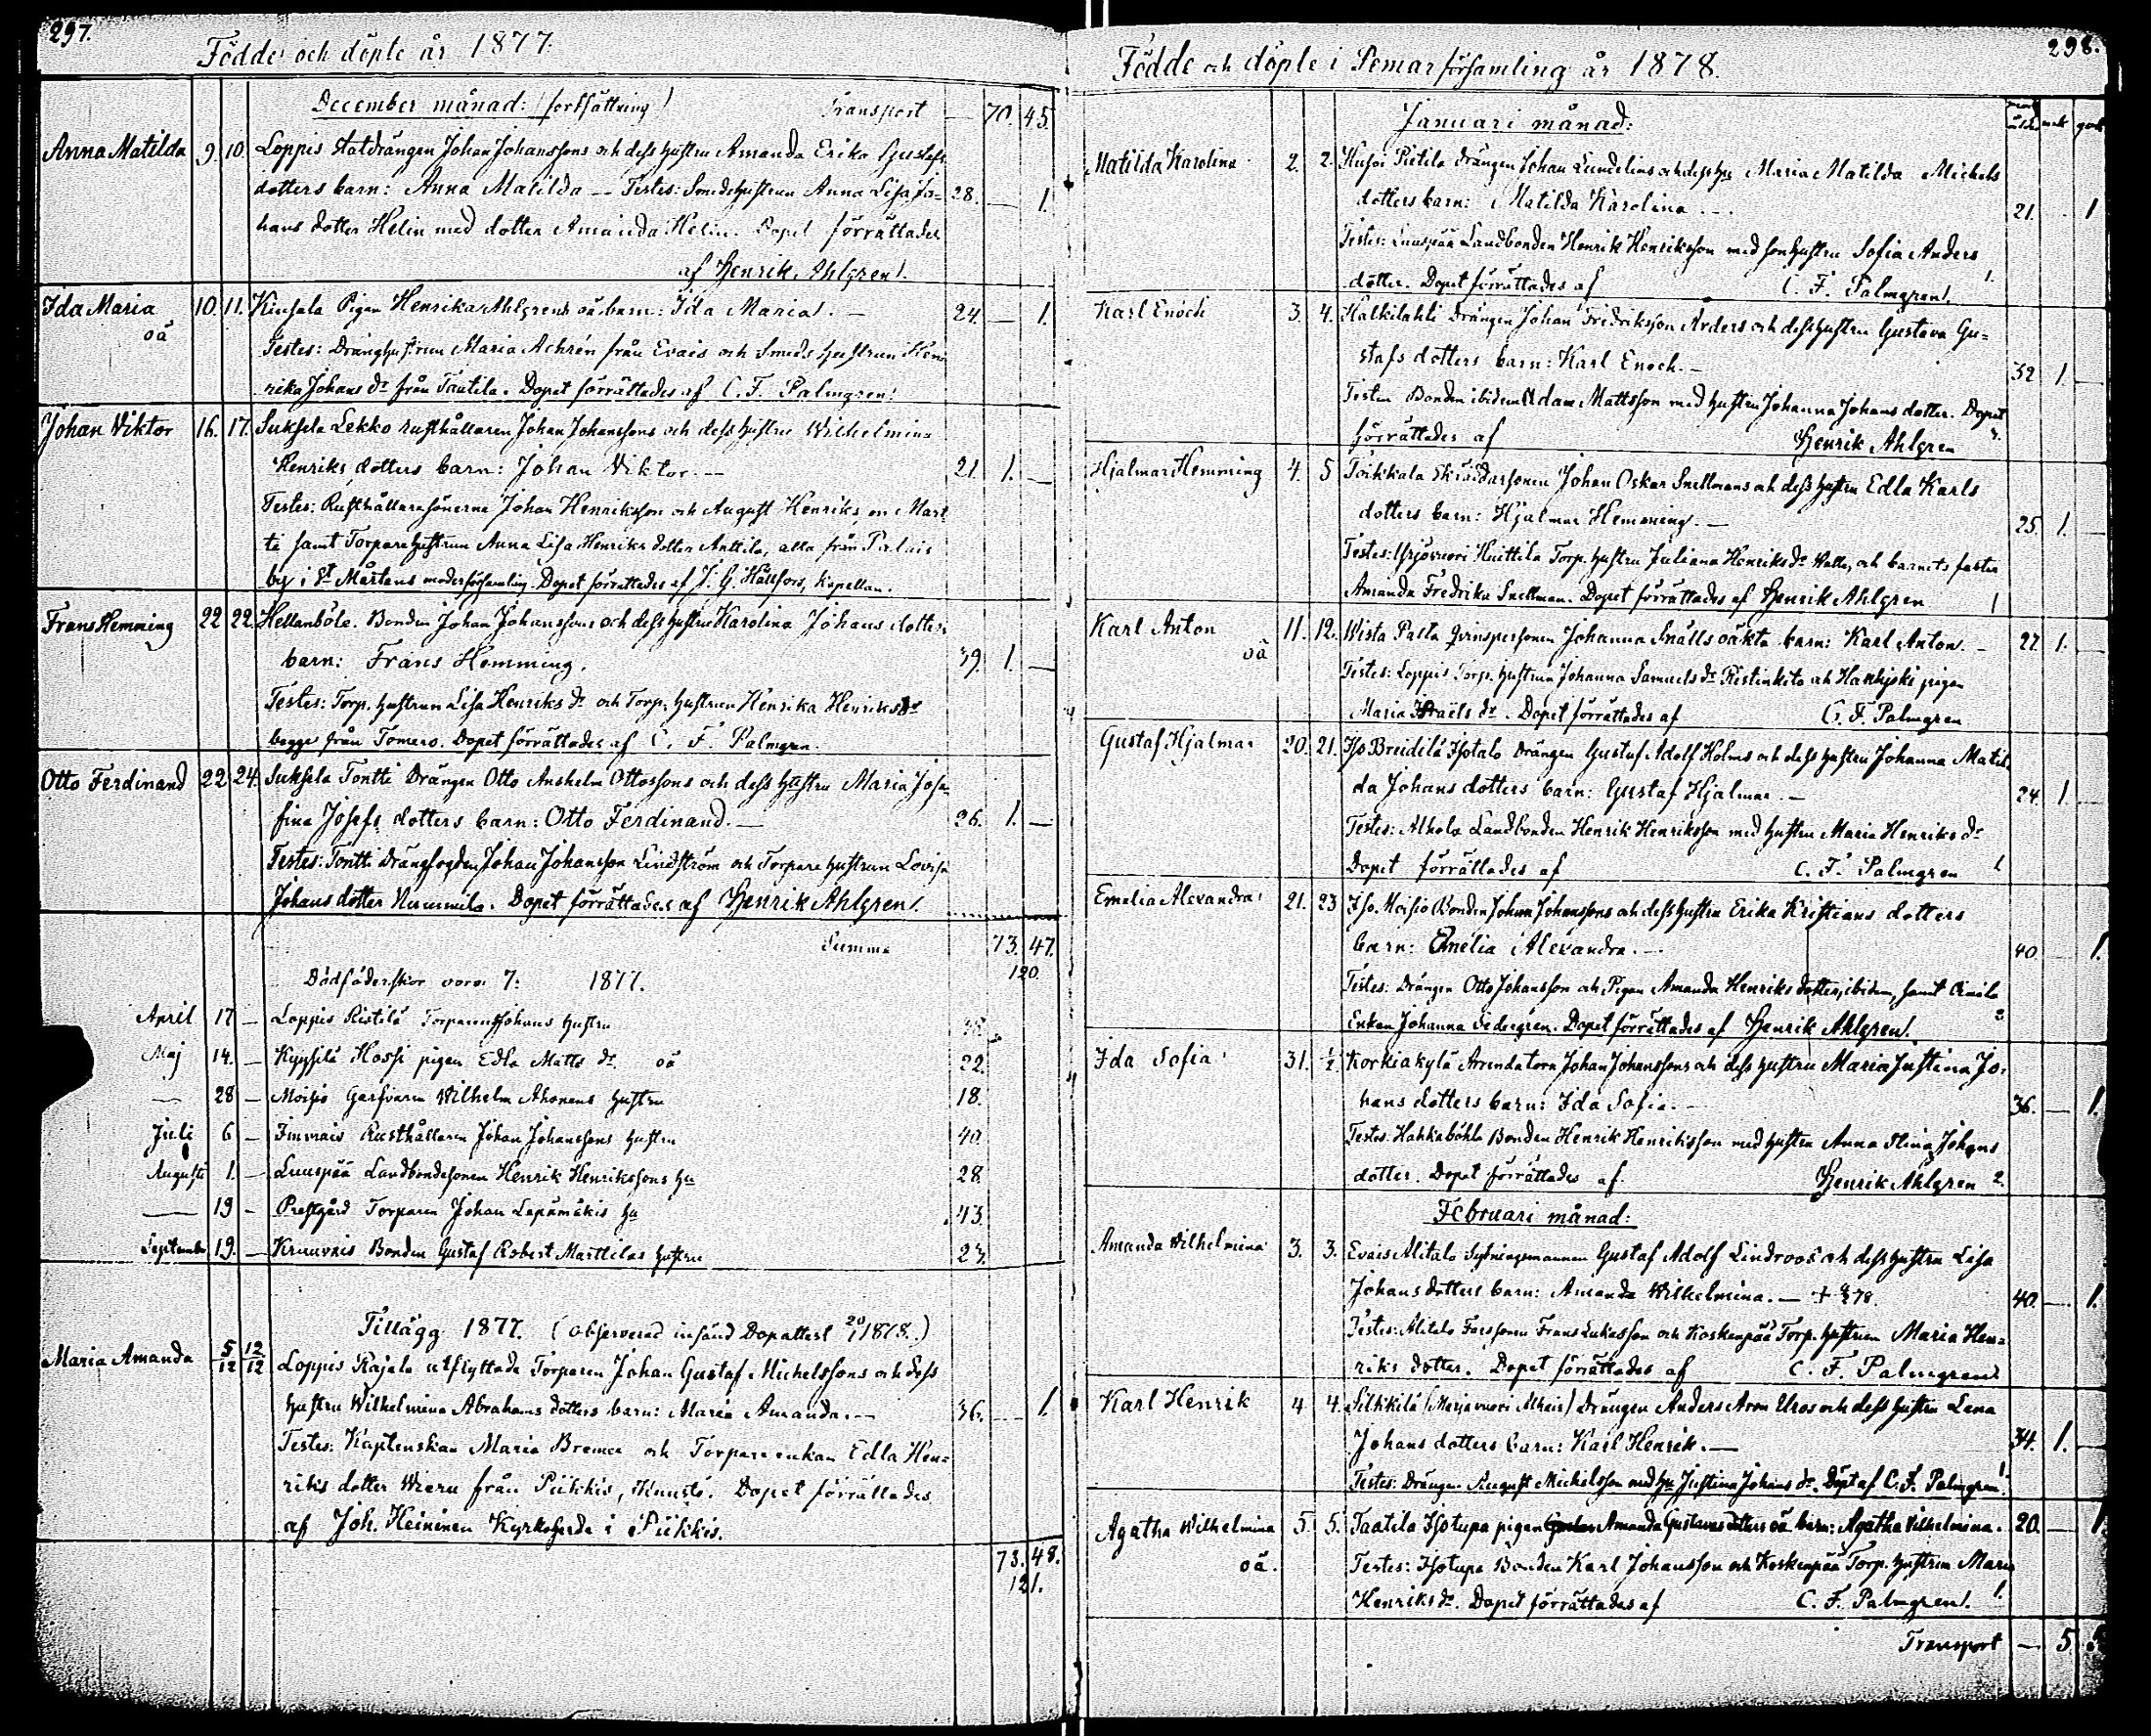 297.
Födde och döpte år 1877.
December månad: (fortsättning) Transport — 70. 45.
Anna Matilda 9 10 Loppis statdrängen Johan Johanssons och dess hustru Amanda Erika Gustafs
dotters barn: Anna Matilda — Testes: Smedshustrun Anna Lisa Jo= 28. — 1.
hans dotter Helin med dotter Amanda Helin. Dopet förrättades
af Henrik Ahlgren.
Ida Maria 10. 11. Pigan Henrika Ahlgrens oä barn: Ida Maria. — 24. — 1.
oä
Testes: Dränghustrun Maria Achrén från Evais och Smeds hustrun Hen
rika Johans dr från Tautila. Dopet förrättades af C. F. Palmgren.
Johan Viktor 16. 17. Suksela Lekko rusthållaren Johan Johanssons och dess hustru Wilhelmina
Henriks dotters barn: Johan Viktor. — 21. 1. —
Testes: Rusthållaresönerna Johan Henriksson och August Henriksson Mart
ti samt Torparehustrun Anna Lisa Henriks dotter Anttila, alla från
by i St Mårtens moderförsamling. Dopet förrättades af J. G. Hällfors, Kapellan.
Frans Hemming 22 22. Hellanböle Bonden Johan Johanssons och dess hustru Karolina Johans dotters
barn: Frans Hemming. 39. 1. —
Testes: Torp. hustrun Lisa Henriks dr och Torp. hustrun Henrika Henriks dr
begge från Tömero. Dopet förrättades af C. F. Palmgren.
Otto Ferdinand 22 24. Suksela Tontti Drängen Otto Anshelm Ottossons och dess hustru Maria Jose=
fina Josefs dotters barn: Otto Ferdinand. — 26. 1. —
Testes: Tontti Drängfogden Johan Johansson Lindström och Torpare hustrun Lovisa
Johans dotter Nurmila. Dopet förrättades af Henrik Ahlgren.
Summa 73. 47.
120.
Dödföderskor voro 7: 1877.
April 17 — Loppis Ristilä Torparen Johans hustru
Maj 14. — Hossi pigan Edla Matts dr. oä 22.
— 28 — Moisio Garfvaren Wilhelm Ahonens hustru 18.
Juli 6 — Rusthållaren Johan Johanssons hustru 40.
Augusti 1. — Luuspää Landbondesonen Henrik Henrikssons hu 28
— 19 — Prestgård Torparen Johan Lepämäkis hu 43.
September 19. — Kruuvais Bonden Gustaf Robert Marttilas hustru 23.
Tillägg 1877. (observerad insänd Dopattest 20/1 1878.)
Maria Amanda 5/12 12/12 Loppis Rajala utflyttade Torparen Johan Gustaf Michelssons och dess
hustru Wilhelmina Abrahams dotters barn: Maria Amanda. — 36. — 1.
Testes: Kaptenskan Maria Bremer och Torpare enkan Edla Hen=
riks dotter Wieru från Piikkis, Kuustö. Dopet förrättades
af Joh. Heininen Kyrkoherde i Piikkis.
73. 48.
121.
298.
Födde och döpte i Pemar församling år 1878.
Januari månad:
Matilda Karolina 2. 2. Pietilä drängen Johan Lundelins och dess hu Maria Matilda Michels
dotters barn: Matilda Karolina. — 21. 1
Testes: Luuspää Landbonden Henrik Henriksson med sonhustru Sofia Anders
dotter. Dopet förrättades af C. F. Palmgren.
Karl Enoch 3. 4. Kalkilahti Drängen Johan Fredriksson Arders och dess hustru Gustava Gu=
stafs dotters barn: Karl Enoch. — 32 1. —
Testes Bonden ibidem Adam Mattsson med hustru Johanna Johans dotter. Dopet
förrättades af Henrik Ahlgren
Hjalmar Hemming 4. 5 Toikkala Skräddarsonen Johan Oskar Snellmans och dess hustru Edla Karls
dotters barn: Hjalmar Hemming. — 25. 1. —
Testes: Huittila Torp. hustru Juliana Henriks dr Walli, och barnets faster
Amanda Fredrika Snellman. Dopet förrättades af Henrik Ahlgren 1
Karl Anton 11. 12. Wista Palta Qvinspersonen Johanna Snälls oäkta barn: Karl Anton. — 27. 1. —
oä
Testes: Loppis Torp. hustrun Johanna Samuels dr Ristinkito och pigan
Maria Israels dr. Dopet förrättades af C. F. Palmgren
Gustaf Hjalmar 20. 21. Iso Breidilä Isotalo Drängen Gustaf Adolf Holms och dess hustru Johanna Matil
da Johans dotters barn: Gustaf Hjalmar. — 24. 1. —
Testes: Alhola Landbonden Henrik Henriksson med hustru Maria Henriks dr
Dopet förrättades af C. F. Palmgren 1
Emelia Alexandra 21. 23 Iso Moisio Bonden Johan Johanssons och dess hustru Erika Kristians dotters
barn: Emelia Alexandra. — 40 — 1.
Testes: Drängen Otto Johansson och Pigan Amanda Henriks dotter, ibidem, samt
Enkan Johanna Sedergren. Dopet förrättades af Henrik Ahlgren. 2
Ida Sofia 31. 1/2 Korkiakylä Arrendatorn Johan Johanssons och dess hustru Maria Justina Jo=
hans dotters barn: Ida Sofia. — 36. — 1.
Testes: Bonden Henrik Henriksson med hustru Anna Stina Johans
dotter. Dopet förrättades af Henrik Ahlgren 2.
Februari månad:
Amanda Wilhelmina 3. 3. Evais Alitalo Sytningsmannen Gustaf Adolf Lindroos och dess hustru Lisa
Johans dotters barn: Amanda Wilhelmina. — 40. — 1.
Testes: Alitalo Frans Lukasson och Koskenpää Torp. hustrun Maria Hen=
riks dotter. Dopet förrättades af C. F. Palmgren
Karl Henrik 4 4. Silkkilä Drängen Anders Aron Uros och dess hustru Lena
Johans dotters barn: Karl Henrik. — 34. 1. —
Testes: Drängen August Michelsson med hu Justina Johans dr. Döpt af C. F. Palmgren.
Agatha Wilhelmina 5. 5. Taatila Isotupa pigan Amanda Gustavas dotters oä barn: Agatha Wilhelmina. 20. — 1.
oä.
Testes: Isotupa Bonden Karl Johansson och Koskenpää Torp. hustrun Maria
Henriks dr. Dopet förrättades af C. F. Palmgren.
Transport — 5.